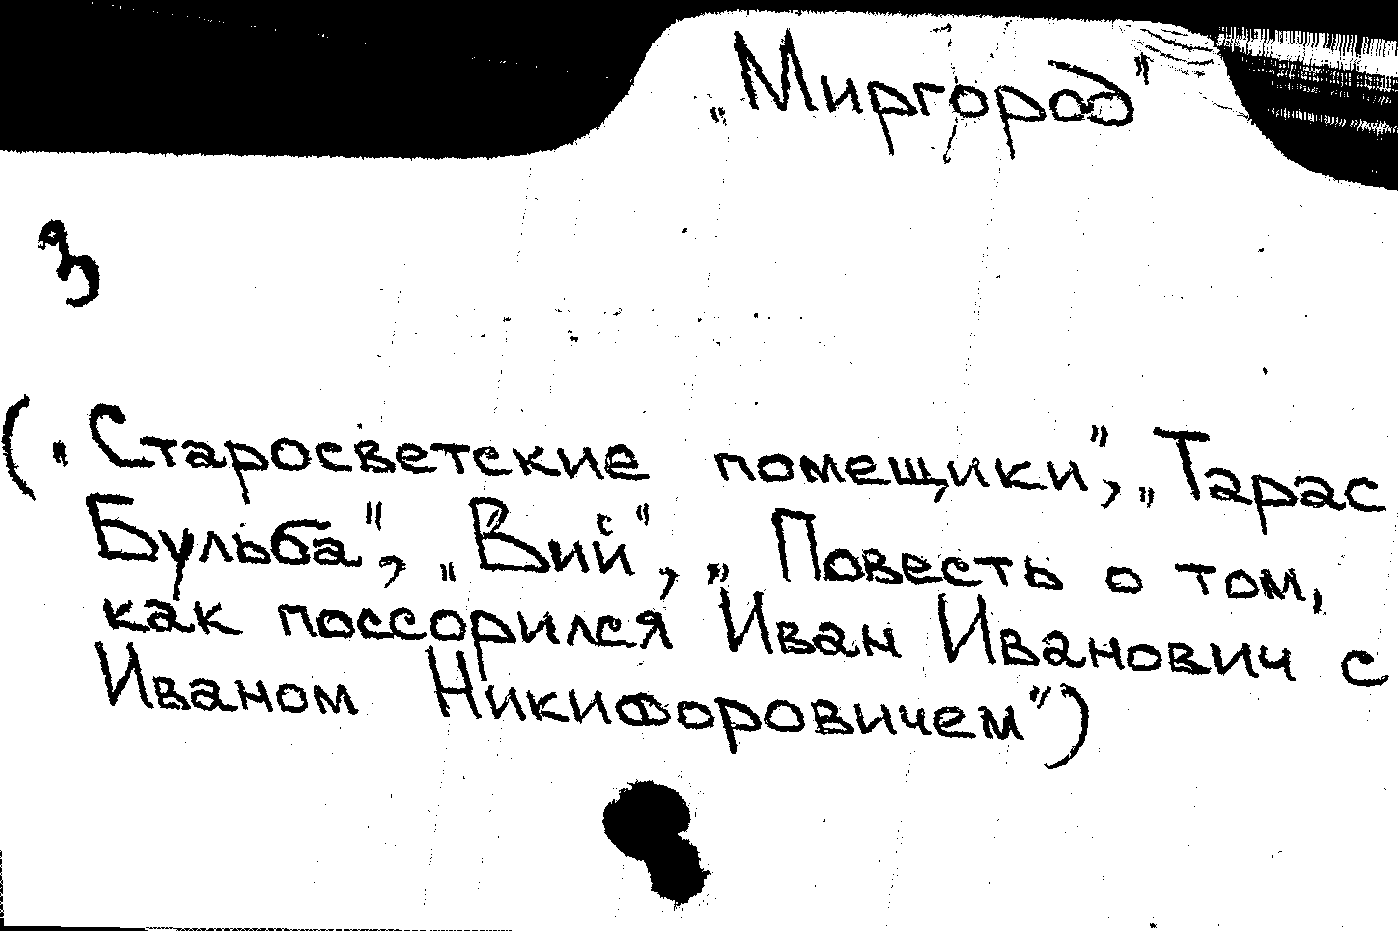 „Миргород"
3
(„Старосветские помещики", „Тарас
Бульба", „Вий", „Повесть о том,
как поссорился Иван Иванович с
Иваном Никифоровичем")